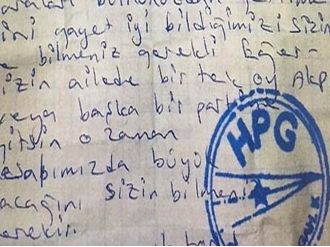 ini gayet iyi bildiğimizi sizin
bilmeniz gerekli Eğer
izin ailede bir tek oy Akp
veya başka bir partiye
gitsin o zaman
esapımızda büyük
acağını sizin bilmeni
erekir.
HPG